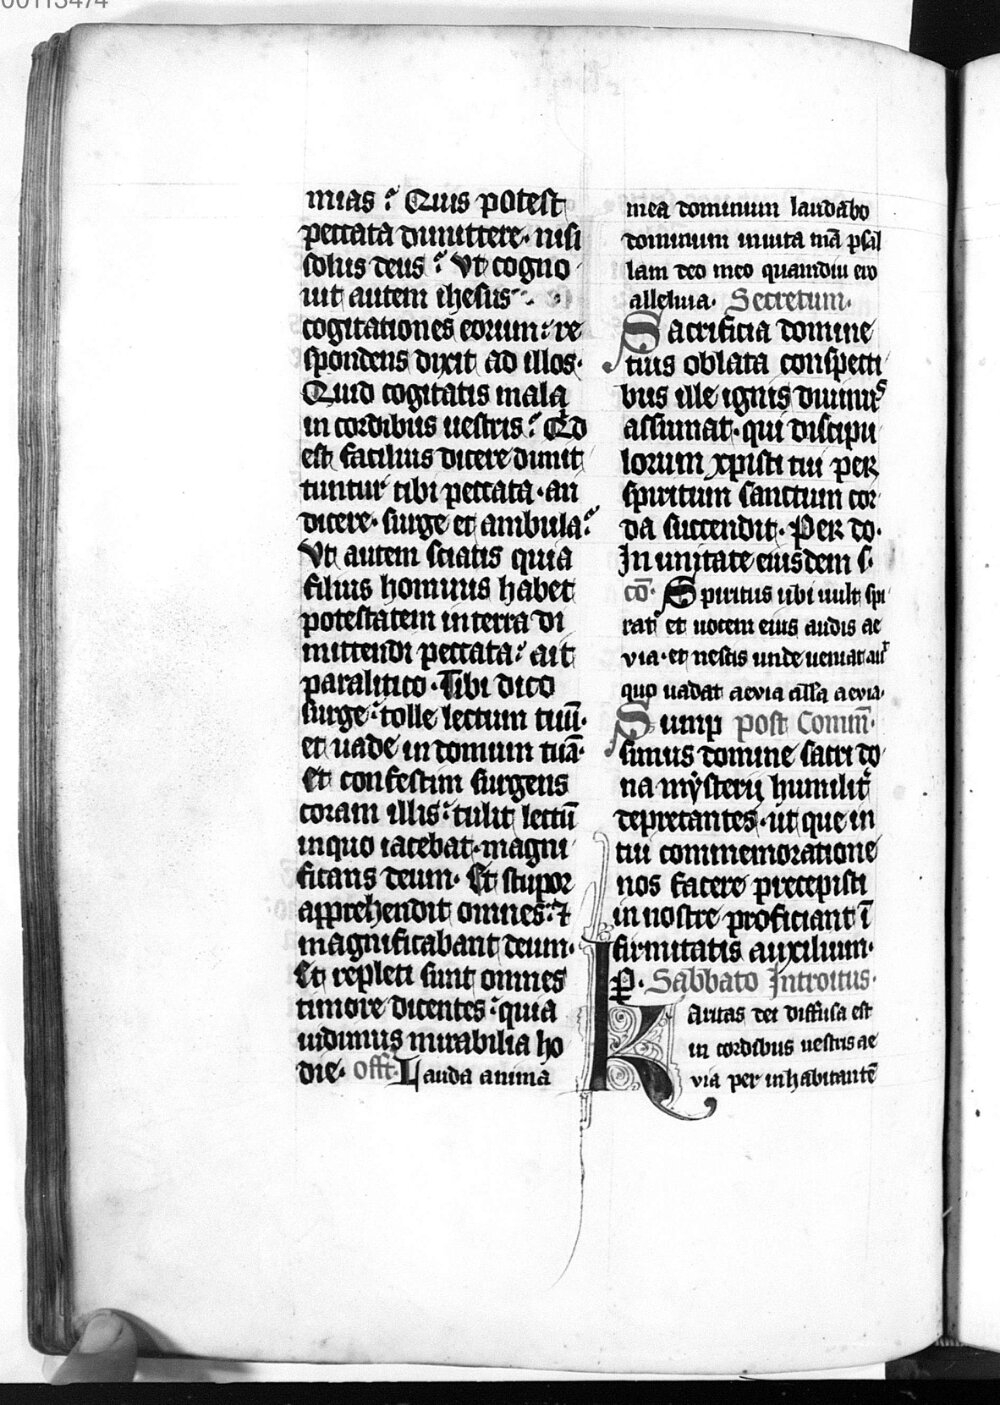 00113474
mias? Quis potest
peccata dimittere. nisi
solus deus? Vt cogno
uit autem ihesus
cogitationes eorum: re
spondens dixit ad illos.
Quid cogitatis mala
in cordibus uestris? Qd
est facilius dicere dimit
tuntur tibi peccata. an
dicere. surge et ambula?
Vt autem sciatis quia
filius hominis habet
potestatem in terra di
mittendi peccata: ait
paralitico. Tibi dico
surge: tolle lectum tuū.
et uade in domum tuā.
Et confestim surgens
coram illis: tulit lectū
in quo iacebat. magni
ficans deum. Et stupor
apprehendit omnes: ⁊
magnificabant deum.
Et repleti sunt omnes
timore dicentes: quia
uidimus mirabilia ho
die. Offt. Lauda anima
mea dominum laudabo
dominum in uita mā psal
lam deo meo quamdiu ero
alleluia. Secretum.
Sacrificia domine
tuis oblata conspecti
bus ille ignis diuinus
assumat. qui discipu
lorum xpisti tui per
spiritum sanctum cor
da succendit. Per do.
In unitate eiusdem s.
cō. Spiritus ubi uult spi
rat et uocem eius audis ae
via. et nescis unde ueniat aut
quo uadat aevia alla aevia.
Sump post Comm̄.
simus domine sacri do
na mysterii humilit
deprecantes. ut que in
tui commemoratione
nos facere precepisti
in nostre proficiant ī
firmitatis auxilium.
P. Sabbato Introitus.
Karitas dei diffusa est
in cordibus uestris ae
via per inhabitantē